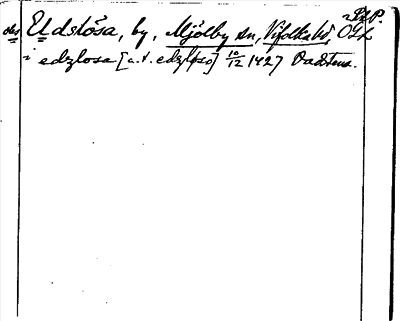 Eldslösa, by, Mjölby sn, Vifolka hd, Ögl.
i edzlosa [a.t. edzløso] 10/12 1427 Vadstena.